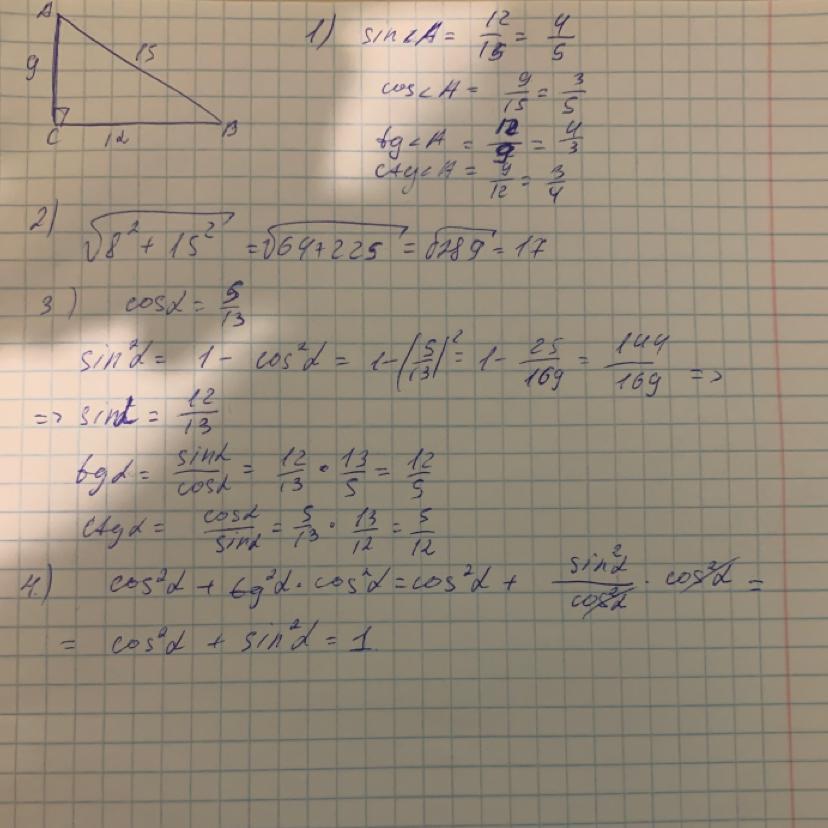 A
15
9
C
12
B
1) sin∠A = 12/15 = 4/5
cos∠A = 9/15 = 3/5
tg∠A = 12/9 = 4/3
ctg∠A = 9/12 = 3/4
2) √8² + 15² = √64+225 = √289 = 17
3) cosα = 5/13
sin²α = 1 - cos²α = 1-(5/13)² = 1 - 25/169 = 144/169 =>
=> sinα = 12/13
tgα = sinα/cosα = 12/13 · 13/5 = 12/5
ctgα = cosα/sinα = 5/13 · 13/12 = 5/12
4.) cos²α + tg²α · cos²α = cos²α + sin²α/cos²α · cos²α =
= cos²α + sin²α = 1